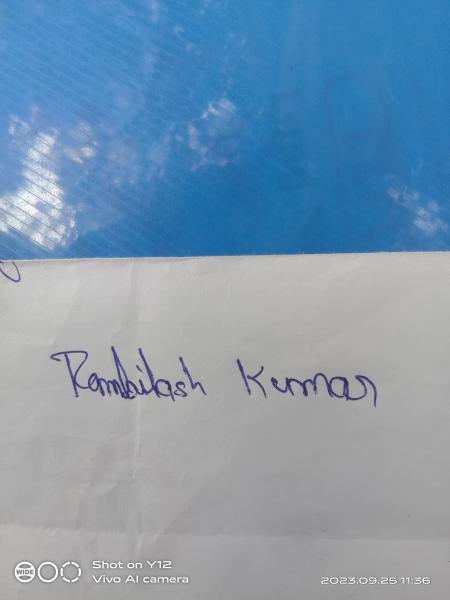 Rambilash Kumar
WIDE
Shot on Y12
Vivo AI camera
2023.09.25 11:36